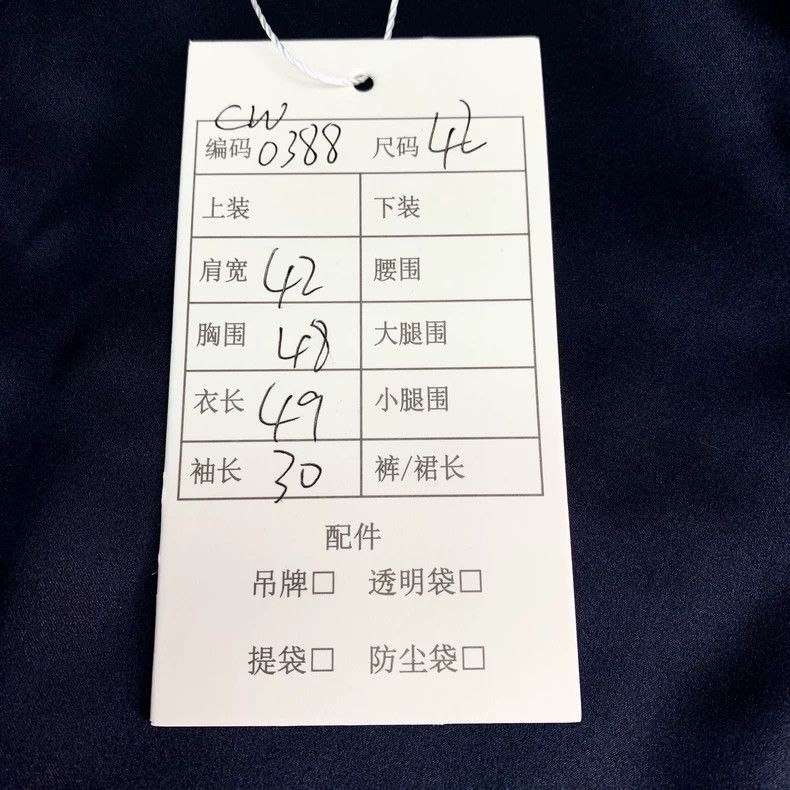 CW
编码 0388 尺码 42
上装 下装
肩宽 42 腰围
胸围 48 大腿围
衣长 49 小腿围
袖长 30 裤/裙长
配件
吊牌□ 透明袋□
提袋□ 防尘袋□